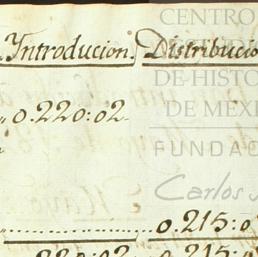 Introducion. Distribucio
CENTRO
DE HISTO
DE MEX
0.220:02
FUNDAC
Carlos
0.215:0
220:02 0.215:0